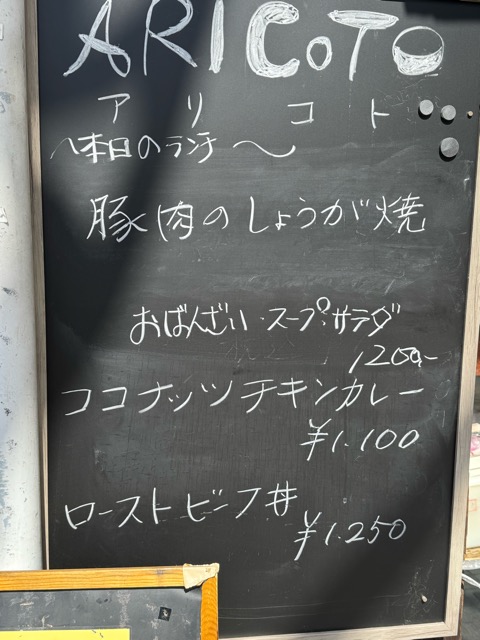 ARICOTO
アリコト
～本日のランチ～
豚肉のしょうが焼
おばんざい・スープ・サラダ
1200-
ココナッツチキンカレー
¥1.100
ローストビーフ丼
¥1.250